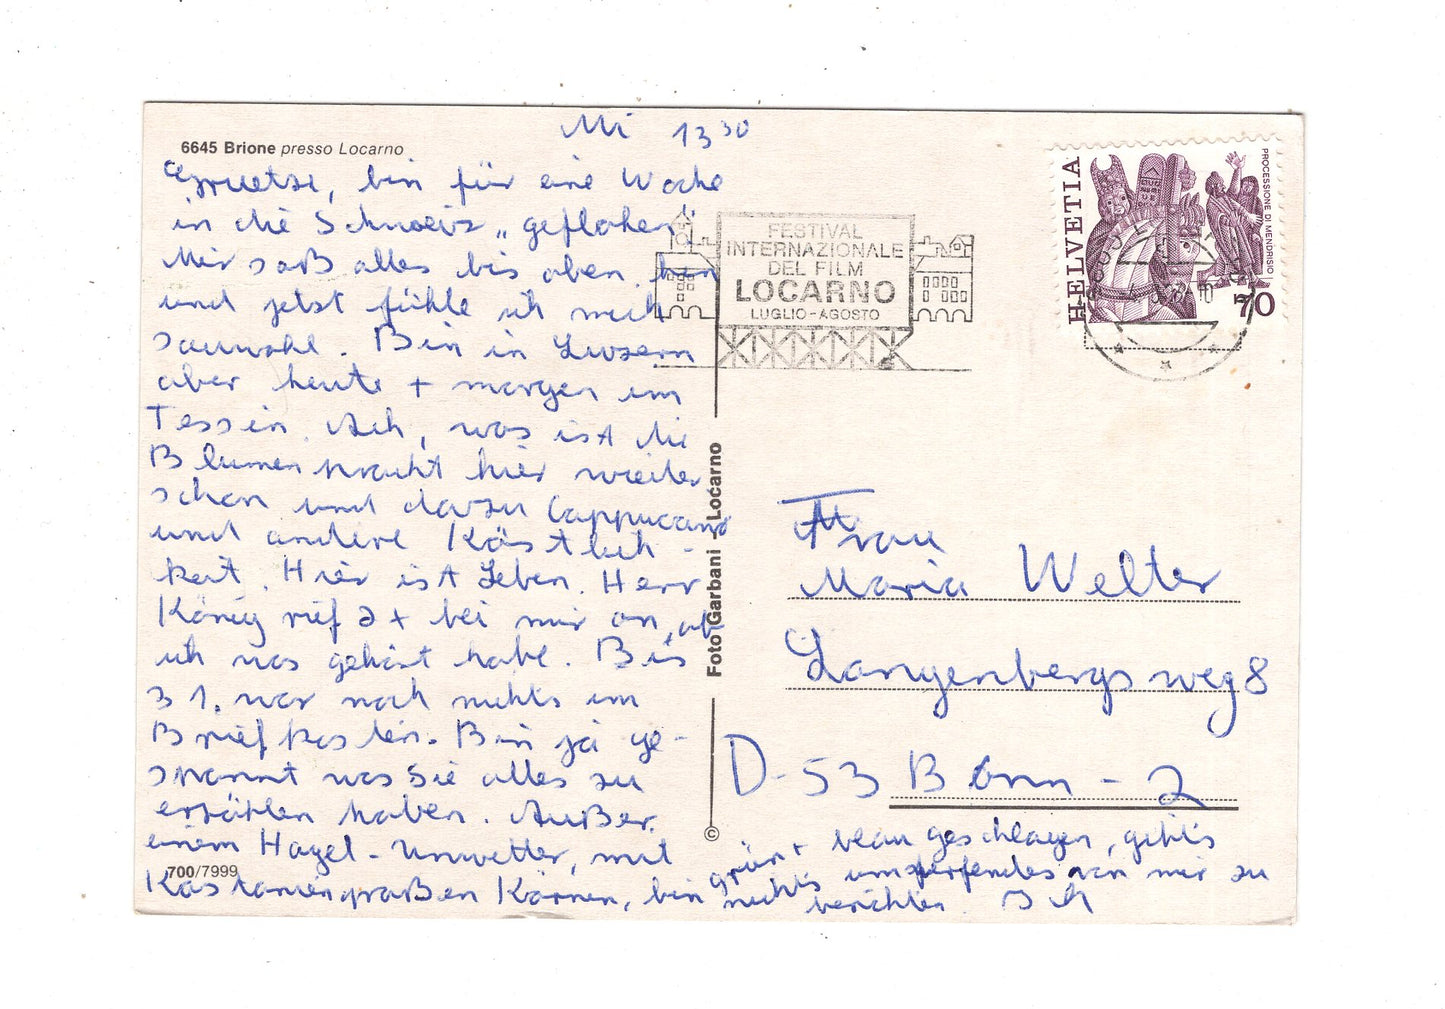 6645 Brione presso Locarno
Mi 13 30
Gruetzi, bin für eine Woche
in die Schweiz „geflohen"
Mir saß alles bis oben hin
und jetzt fühle ich mich
sauwohl. Bin in Luzern
aber heute + morgen im
Tessin. Ach, was ist die
Blumenpracht hier wieder
schön und dazu Cappuccino
und andere Köstlich-
keit. Hier ist Leben. Herr
König rief 2x bei mir an, ob
ich was gehört habe. Bis
31. war noch nichts im
Briefkasten. Bin ja ge-
spannt was Sie alles zu
erzählen haben. Außer
einem Hagel-Unwetter, mit
Kastaniengroßen Körnern, bin
grün + blau geschlagen, gibt's
nichts umwerfendes von mir zu
berichten
700/7999
Foto Garbani - Locarno
©
FESTIVAL
INTERNAZIONALE
DEL FILM
LOCARNO
LUGLIO - AGOSTO
HELVETIA
PROCESSIONE DI MENDRISIO
70
Frau
Maria Welter
Langenbergsweg 8
D-53 Bonn-2